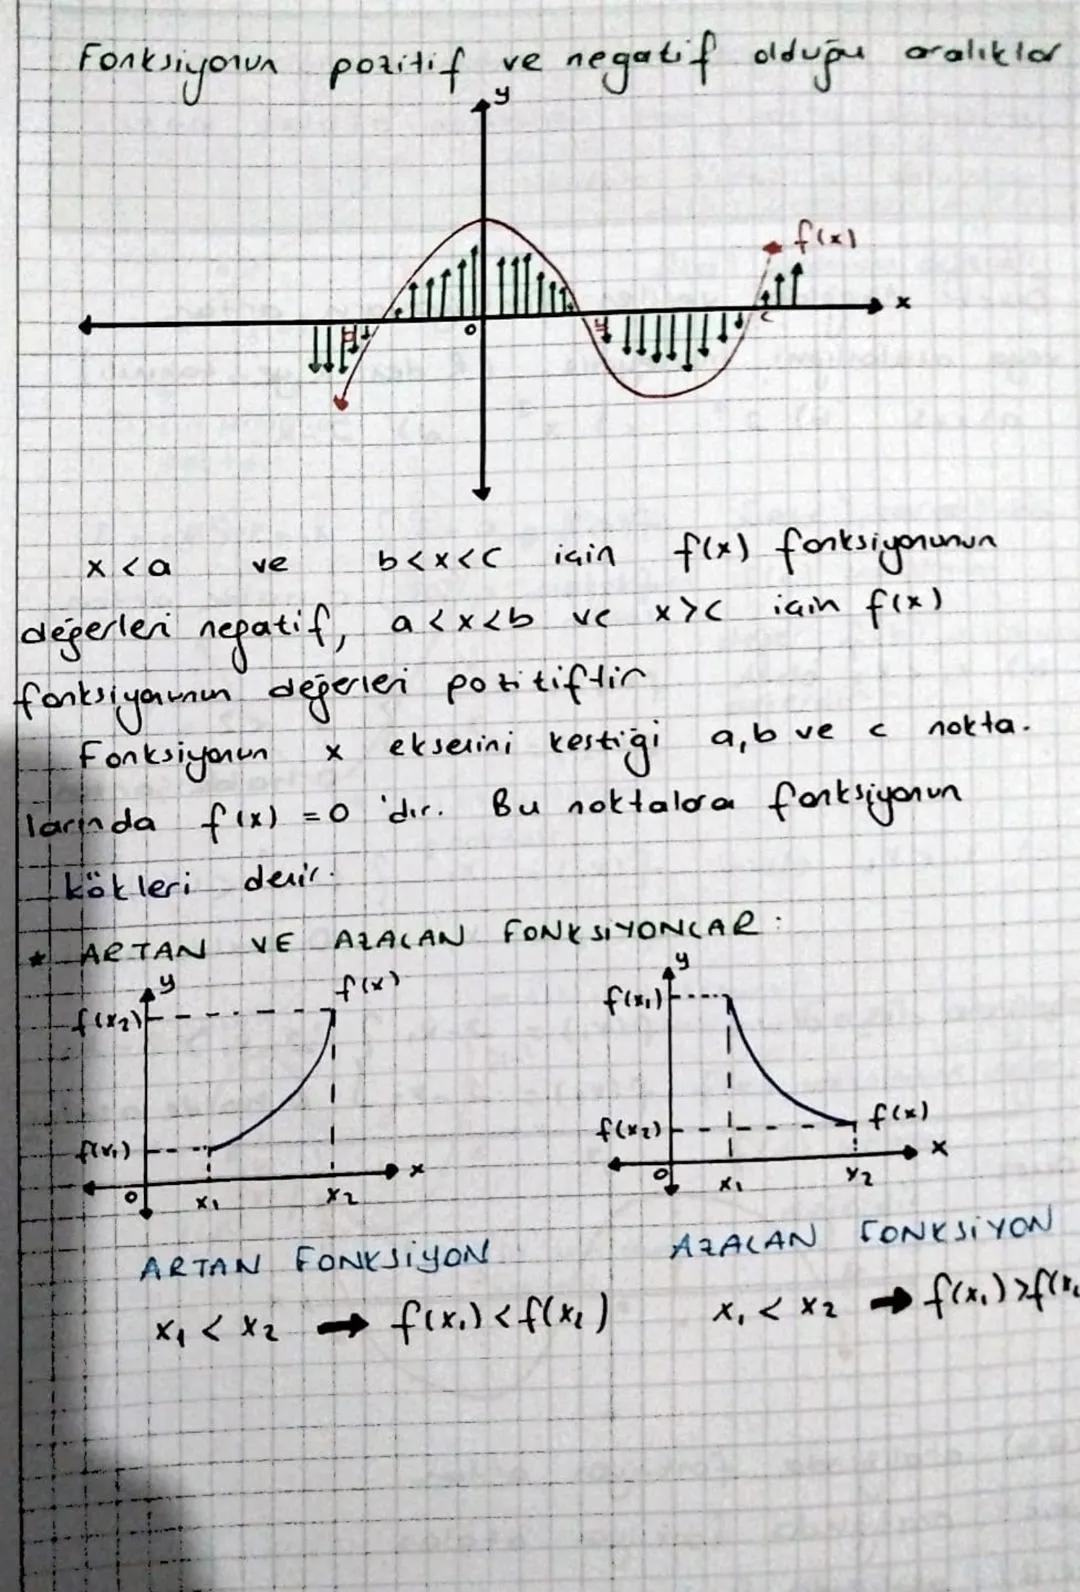 Fonksiyonun pozitif ve negatif olduğu aralıklar
y
f(x)
x
o
c
x < a ve b < x < c için f(x) fonksiyonunun
değerleri negatif, a < x < b ve x > c için f(x)
fonksiyonunun değerleri pozitiftir
Fonksiyonun x eksenini kestiği a, b ve c nokta-
larında f(x) = 0 'dır. Bu noktalara fonksiyonun
kökleri denir.
* ARTAN VE AZALAN FONKSİYONLAR :
y
f(x)
f(x₂)
f(x₁)
o
x₁
x₂
x
y
f(x₁)
f(x₂)
f(x)
o
x₁
x₂
x
ARTAN FONKSİYON
AZALAN FONKSİYON
x₁ < x₂ → f(x₁) < f(x₂)
x₁ < x₂ → f(x₁) > f(x